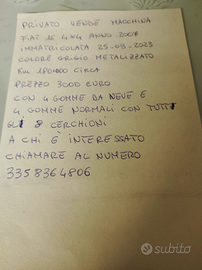 PRIVATO VENDE MACCHINA
FIAT 16 4X4 ANNO 2008
IMMATRICOLATA 25-09-2023
COLORE GRIGIO METALIZZATO
KM 180400 CIRCA
PREZZO 3000 EURO
CON 4 GOMME DA NEVE E
4 GOMME NORMALI CON TUTTI
GLI 8 CERCHIONI
A CHI È INTERESSATO
CHIAMARE AL NUMERO
3358364806
subito